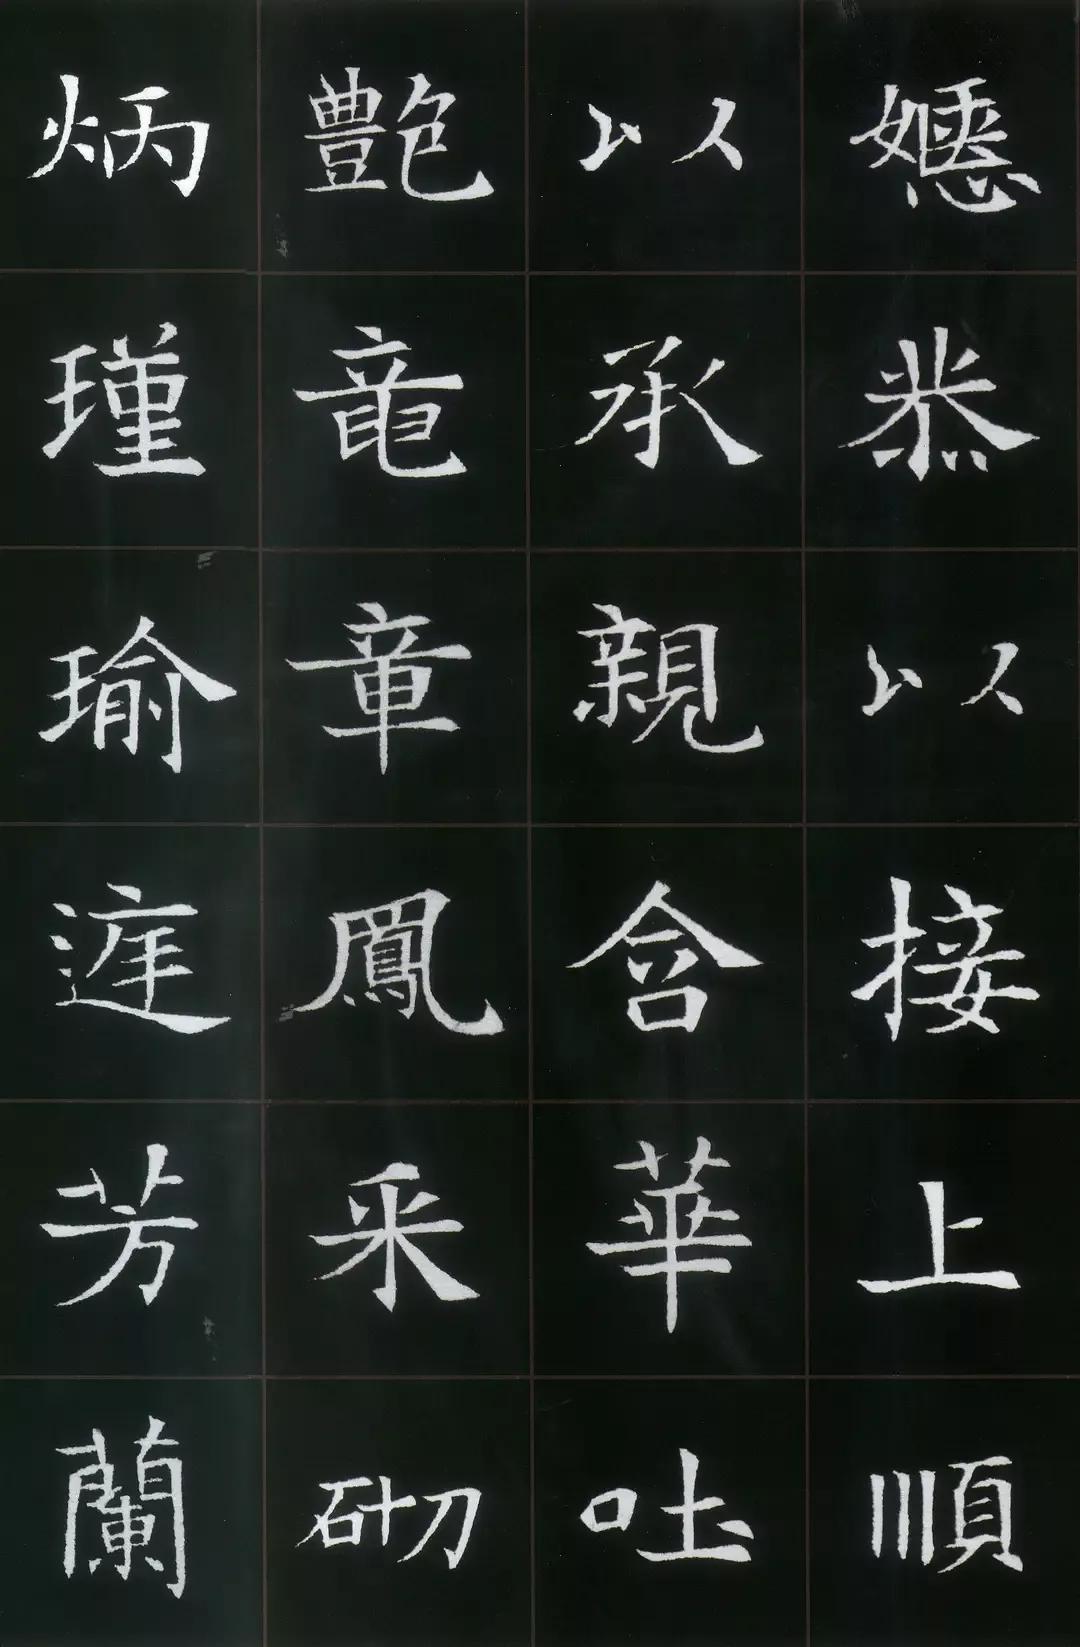 嫕恭以接上順
以承親含華吐
艷竜章鳳采砌
炳瑾瑜庭芳蘭